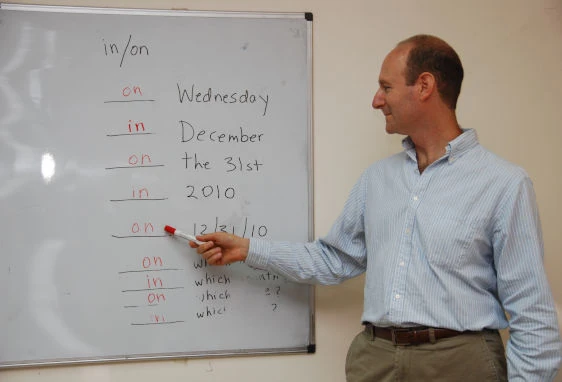 in/on
on Wednesday
in December
on the 31st
in 2010
on 12/31/10
on
in which
on which ?
in which ?